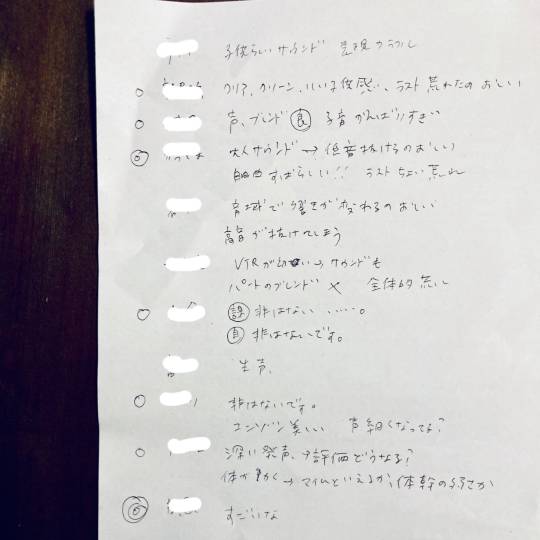 子供らしいサウンド 表現カラフル
○ クリア、クリーン、いい子供感、ラスト荒れたのおしい
○ 声、ブレンド 良 子音がんばりすぎ
◎ 大人サウンド→低音抜けるのおしい
自由曲すばらしい!! ラストちょい荒れ
音域で響きが変わるのおしい
高音が抜けてしまう
VTRが幼い→サウンドも
パートのブレンド × 全体的荒い
○ 課 非はない ……。
自 非はないです。
生声、
○ 非はないです。
ユニゾン美しい 声細くなってる?
○ 深い発声、→評価どうなる?
体が動く→マイムといえるか、体幹の弱さか
◎ すごいな